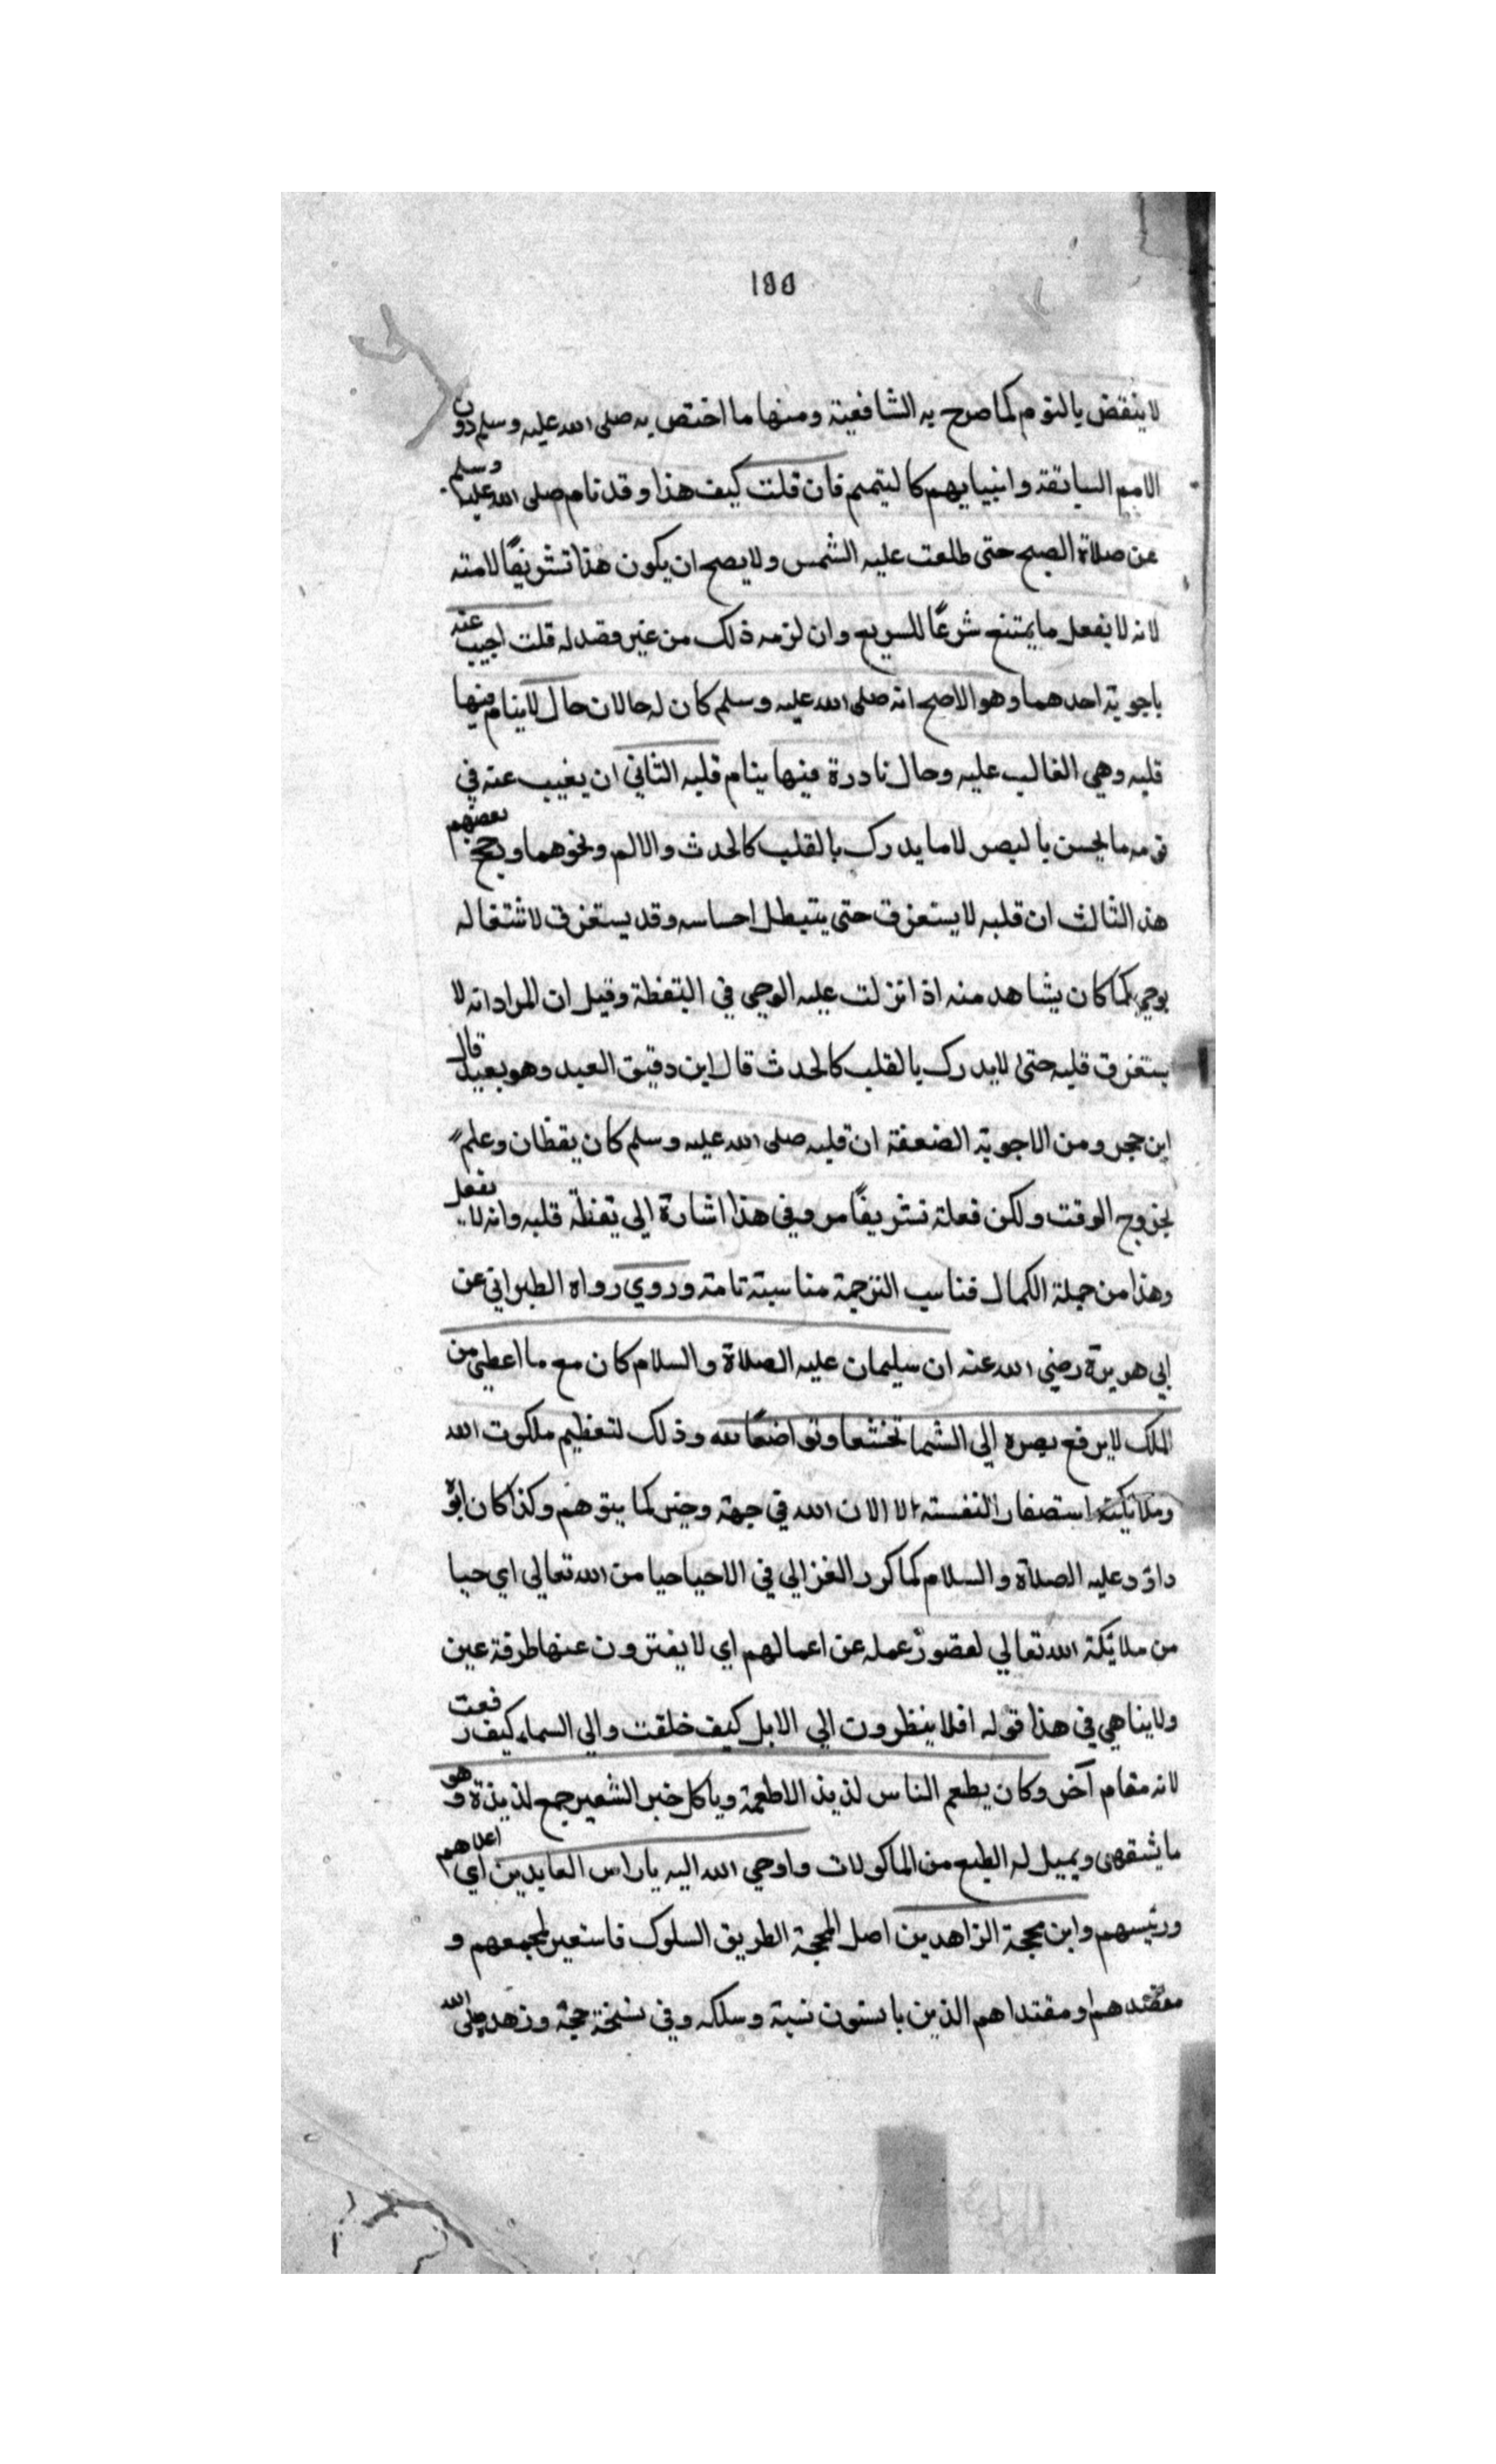 188
لا ينقض بالنوم كما صرح به الشافعية ومنها ما اختص به صلى الله عليه وسلم دون
الامم السابقة وانبيايهم كالتيمم فان قلت كيف هذا وقد نام صلى الله عليه وسلم
عن صلاة الصبح حتى طلعت عليه الشمس ولا يصح ان يكون هذا تشريفًا لامته
لانه لا يفعل ما يمتنع شرعًا للسريع وان لزمه ذلك من غير قصد له قلت اجيب عنه
باجوبة احدهما وهو الاصح انه صلى الله عليه وسلم كان له حالان حال لا ينام فيها
قلبه وهي الغالب عليه وحال نادرة فيها ينام قلبه الثاني ان يغيب عنه في
نومه ما يحسن بالبصر لا ما يدرك بالقلب كالحدث والالم ونحوهما ويحج بعضهم
هذ الثالث ان قلبه لا يستغرق حتى يتبطل احساسه وقد يستغرق لاشتغاله
بوحي كما كان يشاهد منه اذ انزلت عليه الوحي في اليقظة وقيل ان المراد انه لا
يستغرق قلبه حتى لا يدرك بالقلب كالحدث قال ابن دقيق العيد وهو بعيد قال
ابن حجر ومن الاجوبة الضعفة ان قلبه صلى الله عليه وسلم كان يقظان وعلم
بخروج الوقت ولكن فعلة تشريفًا مر وفي هذا اشارة الي يقظة قلبه وانه لا يفعل
وهذا من جملة الكمال فناسب الترجمة مناسبة تامة وروي رواه الطبراني عن
ابي هريرة رضي الله عنه ان سليمان عليه الصلاة والسلام كان مع ما اعطي من
الملك لا يرفع بصره الي السما تخشعا وتواضعًا لله وذلك لتعظيم ملكوت الله
وملائكته استصغارا لنفسته الا الان الله في جهة وحيز كما يتوهم وكذا كان ابوه
داود عليه الصلاة والسلام كما كرر الغزالي في الاحيا حيا من الله تعالي اي حيا
من ملائكة الله تعالي لعضور عمله عن اعمالهم اي لا يفترون عنها طرفة عين
ولا يناهي في هذا قوله افلا ينظرون الي الابل كيف خلقت والي السماء كيف رفعت
لانه مقام آخر وكان يطعم الناس لذيذ الاطعمة وياكل خبز الشعير جمع لذيذة وهو
ما يشتهى ويميل له الطبع من الماكولات واوحي الله اليه يا راس العابدين اي اعلاهم
ورئيسهم وابن محجة الزاهدين اصل المحجة الطريق السلوك فاستعير لمجمعهم و
معتقدهم او مقتداهم الذين باتسون نسبة وسلكه وفي نسخة حجة وزهده صلى الله